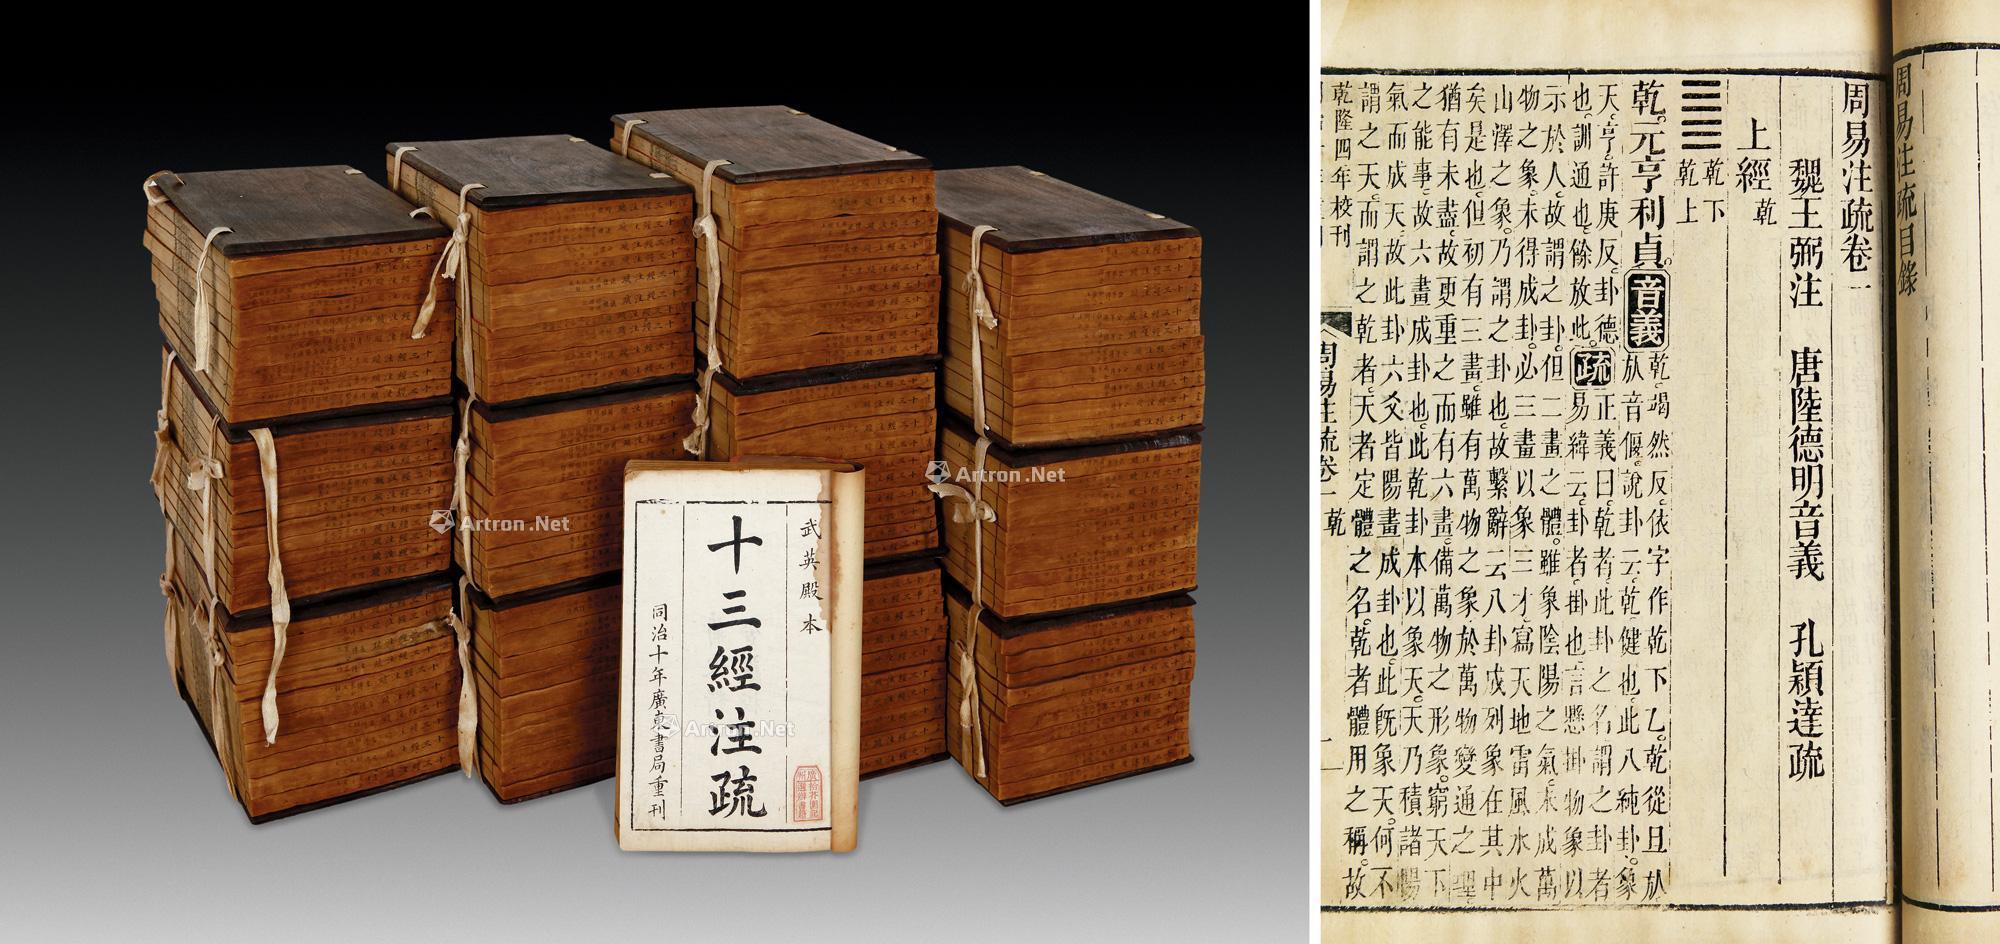 武英殿本
十三經注疏
同治十年廣東書局重刊
Artron.Net
Artron.Net
Artron.Net
周易注疏目錄
周易注疏卷一
魏王弼注 唐陸德明音義 孔穎達疏
上經乾
乾下
乾上
乾元亨利貞。音義乾竭然反依字作乾下乙乾從旦㫃
㫃音偃。說卦云乾健也此八純卦象
天。亨許庚反。卦德
也訓通也餘放此。疏正義曰乾者此卦之名謂之卦者
易緯云卦者掛也言懸掛物象以
示於人故謂之卦。但二畫之體雖象陰陽之氣未成萬
物之象未得成卦。必三畫以象三才寫天地雷風水火
山澤之象乃謂之卦也。故繫辭云八卦成列象在其中
矣是也。但初有三畫雖有萬物之象於萬物變通之理
猶有未盡故更重之而有六畫備萬物之形象窮天下
之能事故六畫成卦也此乾卦本以象天天乃積諸陽
氣而成天故此卦六爻皆陽畫成卦也此既象天何不
謂之天而謂之乾者天者定體之名乾者體用之稱故
乾隆四年校刊
周易注疏卷一 乾
一